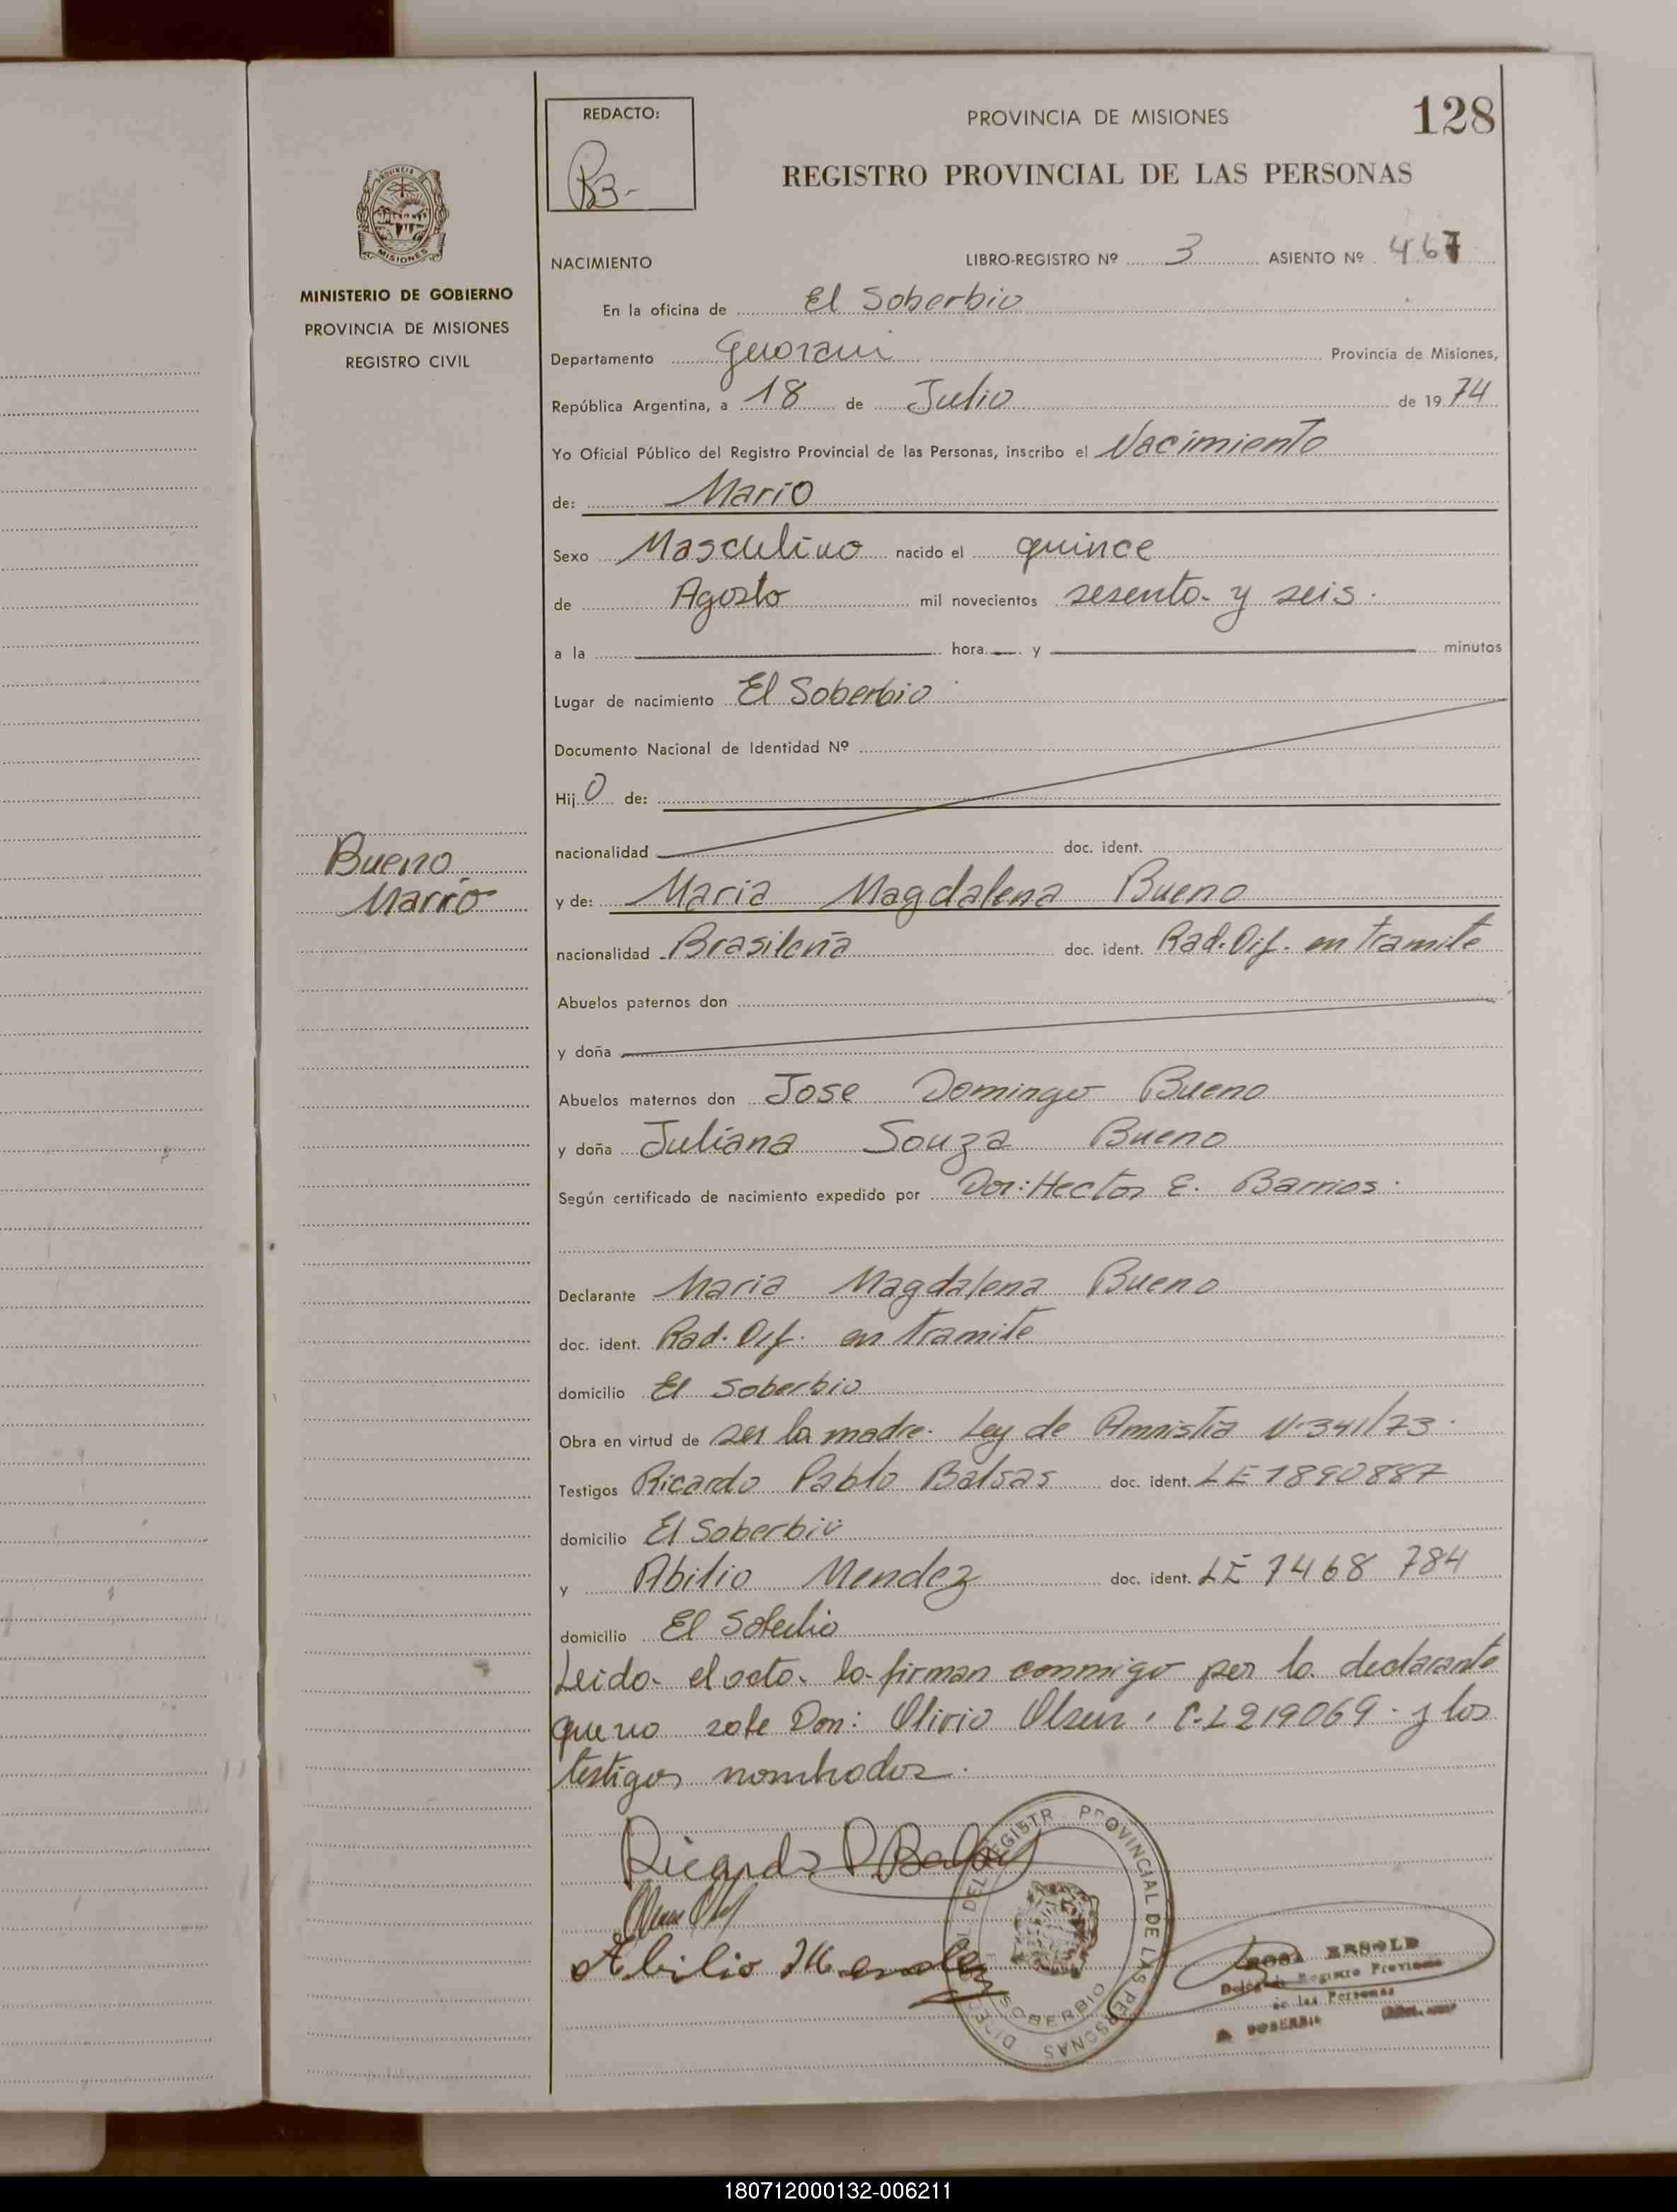 REDACTO:
PROVINCIA DE MISIONES
128
REGISTRO PROVINCIAL DE LAS PERSONAS
PROVINCIA DE
MISIONES
MINISTERIO DE GOBIERNO
PROVINCIA DE MISIONES
REGISTRO CIVIL
NACIMIENTO LIBRO-REGISTRO Nº 3 ASIENTO Nº 467
En la oficina de El Soberbio
Departamento Guarani Provincia de Misiones,
República Argentina, a 18 de Julio de 1974
Yo Oficial Público del Registro Provincial de las Personas, inscribo el Nacimiento
de: Mario
Sexo Masculino nacido el quince
de Agosto mil novecientos sesenta y seis.
a la hora y minutos
Lugar de nacimiento El Soberbio
Documento Nacional de Identidad Nº
Hijo de:
nacionalidad doc. ident.
Bueno
Mario
y de: Maria Magdalena Bueno
nacionalidad Brasileña doc. ident. Rad. Dif. en tramite
Abuelos paternos don
y doña
Abuelos maternos don Jose Domingo Bueno
y doña Juliana Souza Bueno
Según certificado de nacimiento expedido por Dor: Hector E. Barrios.
Declarante Maria Magdalena Bueno
doc. ident. Rad. Dif. en tramite
domicilio El Soberbio
Obra en virtud de ser la madre. Ley de Amnistia Nº 341/73.
Testigos Ricardo Pablo Balsas doc. ident. LE 7890887
domicilio El Soberbio
y Abilio Mendez doc. ident. LE 7468 784
domicilio El Soberbio
Leido el acto lo firman conmigo por la declarante
que no sabe Don: Olivio Olsen, C.I 219069. y los
testigos nombrados.
Ricardo P Balsas
Abilio Mendez
REGISTR PROVINCIAL DE LAS PERSONAS
SOBERBIO
ROSA ERSOLD
Registro Provincial
de las Personas
EL SOBERBIO
180712000132-006211